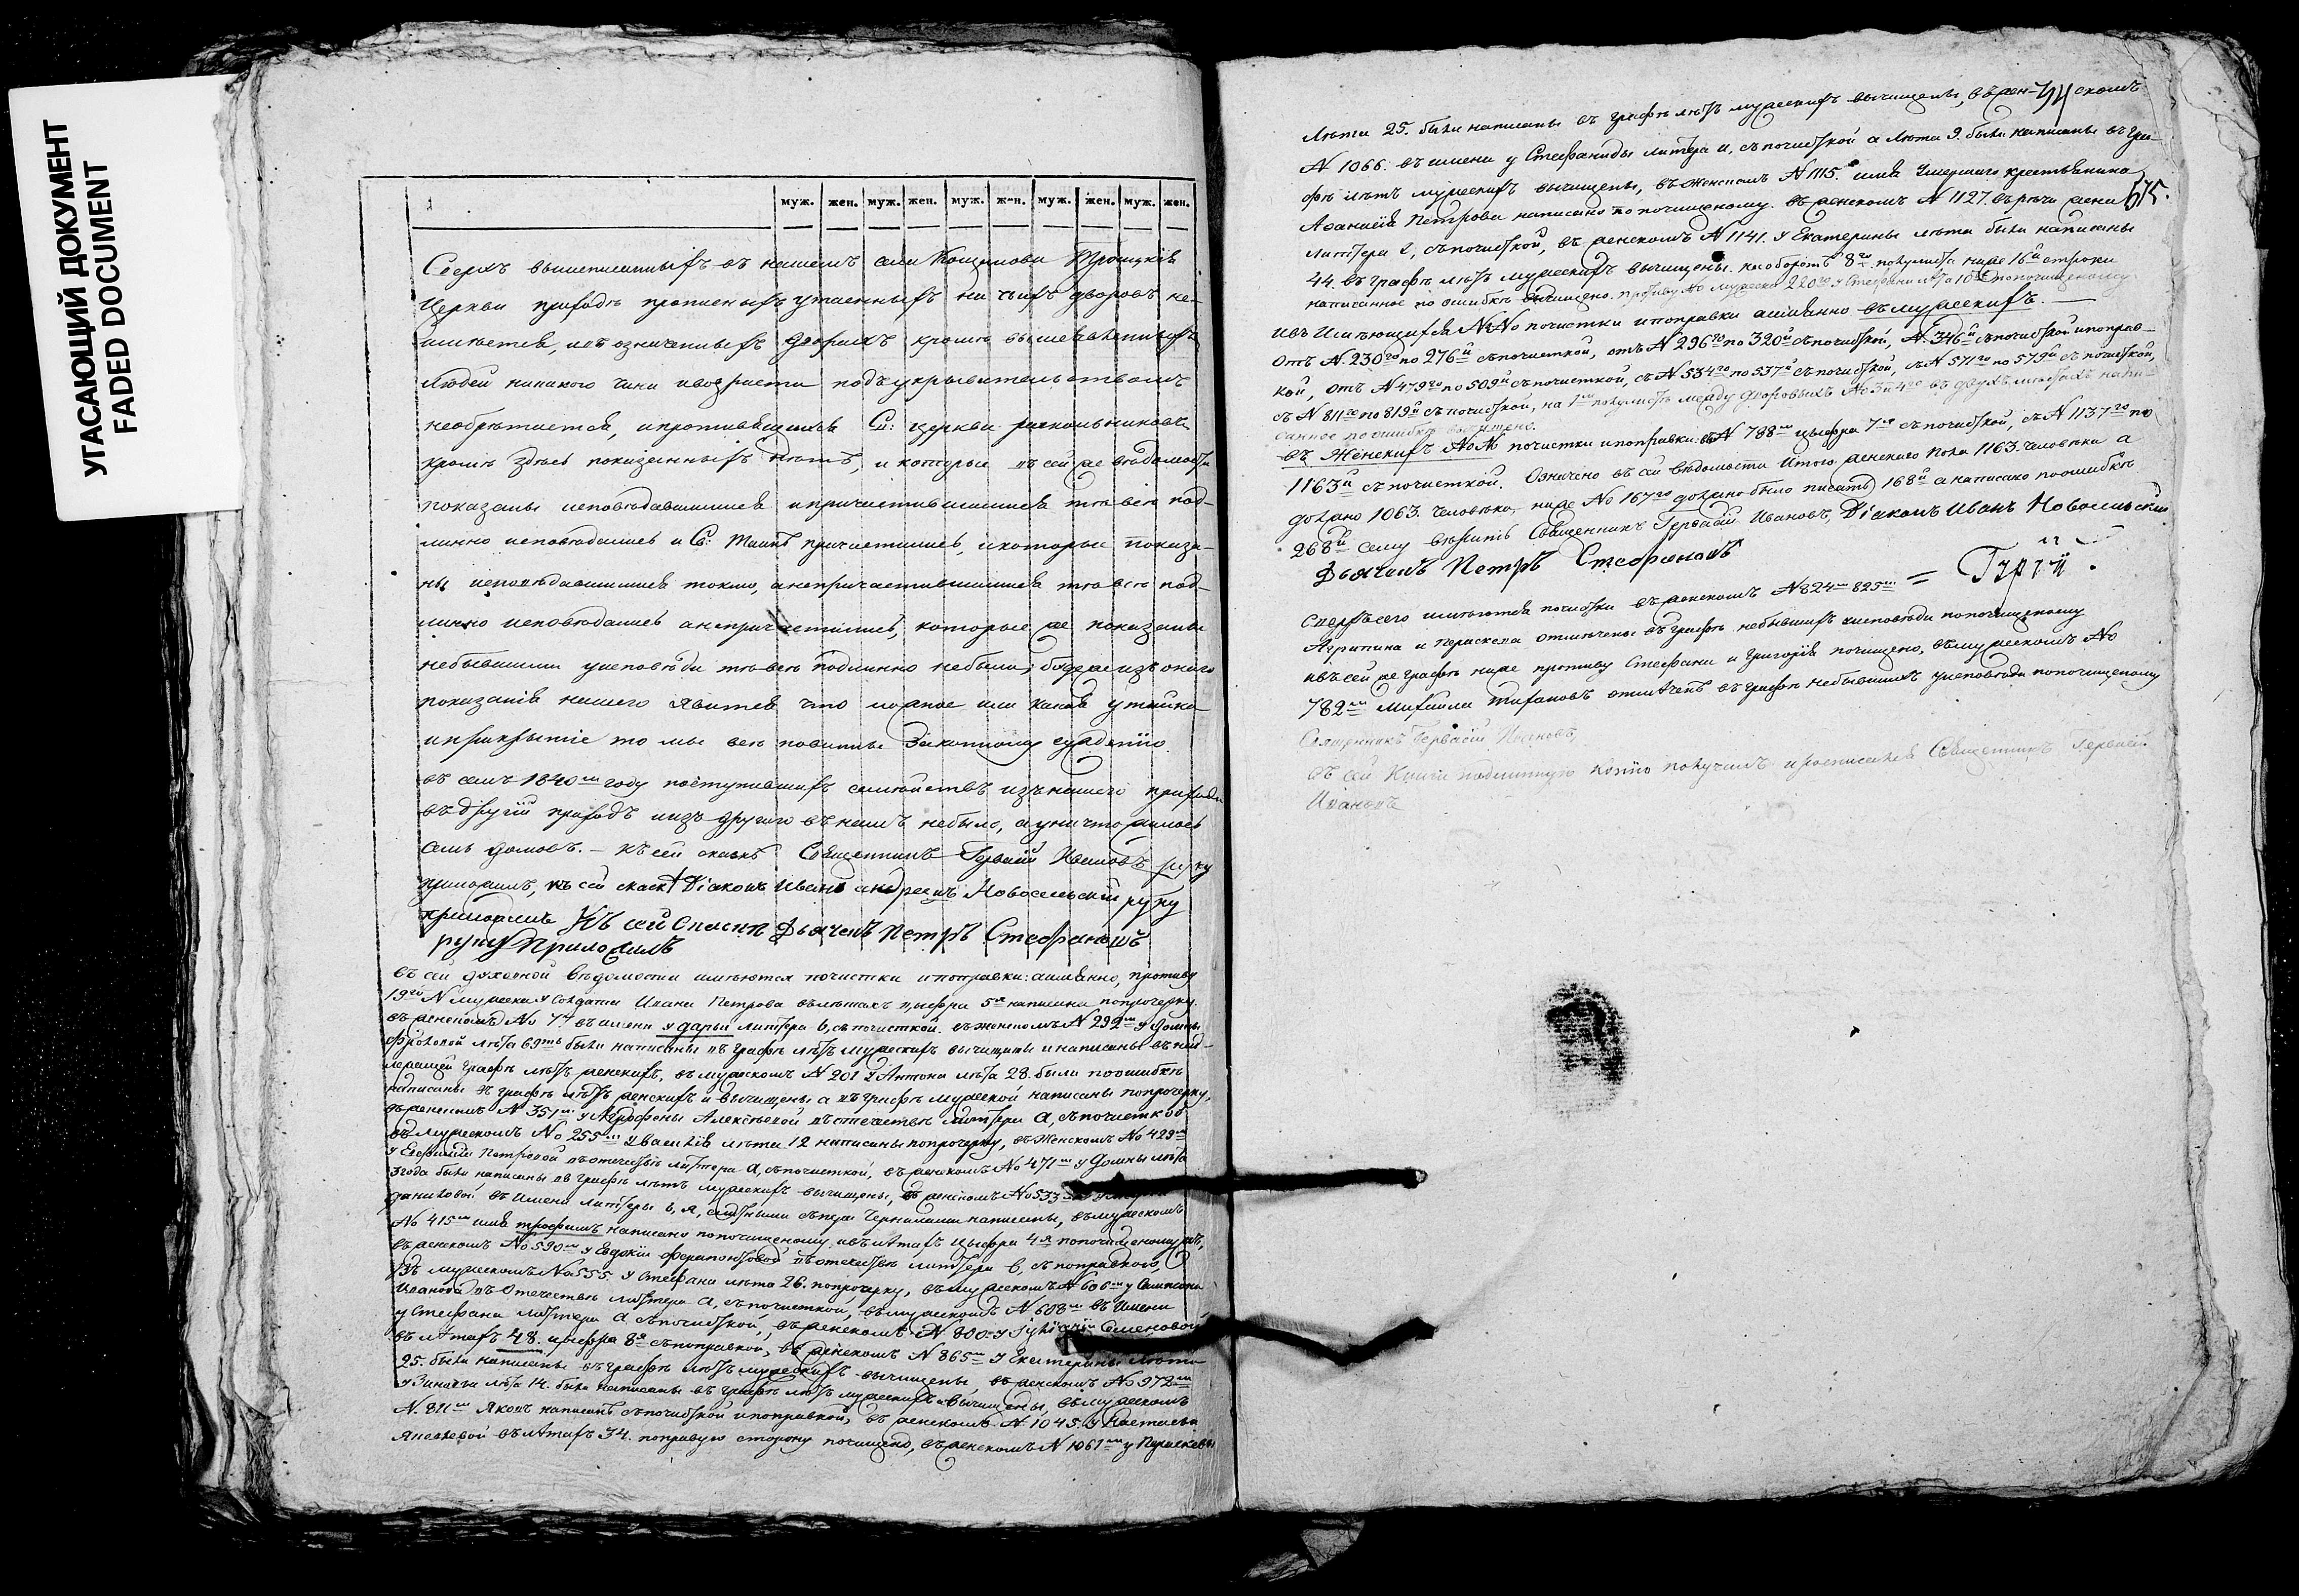 УГАСАЮЩИЙ ДОКУМЕНТ
FADED DOCUMENT
муж. жен. муж. жен. муж. жен. муж. жен. муж. жен.
Сверхъ вышеписанныхъ въ нашемъ селѣ Троицкія
Церкви приходѣ прописныхъ утаенныхъ ни чьихъ дворовъ не
имѣется, и въ означенныхъ дворахъ кромѣ вышеписанныхъ
людей никакого чина и возраста подъ укрывительствомъ
необрѣтается, и противящихся Св: церкви раскольниковъ
кромѣ здѣсь показанныхъ нѣтъ, и которые въ сей же вѣдомости
показаны исповѣдавшимися и причастившимися тѣ всѣ под-
линно исповѣдались и Св: Таинъ причастились, и которые показа-
ны исповѣдавшимися токмо, а непричастившимися тѣ всѣ под-
линно исповѣдались а непричастились, которые же показаны
небывшими у исповѣди тѣ всѣ подлинно небыли; буде же изъ оного
показанія нашего явится что ложное или какая утайка
и прикрытіе то мы всѣ повинны законному сужденію.
въ семъ 1840мъ году поступившихъ семействъ изъ нашего прихода
въ другій приходъ и изъ другаго въ нашъ небыло, а уничтожилось
семь домовъ. – Къ сей сказкѣ Священникъ Гервасій Ивановъ руку
приложилъ, къ сей сказкѣ Діаконъ Иванъ Андреевъ Новосельскій руку
приложилъ Къ сей Скаскѣ Дьячекъ Петръ Стефановъ
руку Приложилъ
въ сей духовной вѣдомости имѣются почистки и поправки: а имянно, противу
19го N мужеска у Солдата Ивана Петрова въ лѣтахъ цыфра 5я написана попрочерку.
въ женскомъ No 74 въ имени у Дарьи литера ь, съ почисткой. въ женскомъ N 292мъ у Домны
Фроловой лѣта 69ть были написаны въ графѣ лѣтъ мужескихъ вычищены и написаны въ над-
лежащей графѣ лѣтъ женскихъ, въ мужескомъ N 201 у Антона лѣта 28. были поошибкѣ
написаны въ графѣ лѣтъ женскихъ и вычищены а въ графѣ мужеской написаны попрочерку,
въ женскомъ N 351мъ у Агрофены Алексѣевой въ отечествѣ литера а, съ почисткой
въ мужескомъ No 255мъ у Василія лѣта 12 написаны попрочерку, въ женскомъ No 429мъ
у Петровой въ отечествѣ литера а, съ почисткой, въ женскомъ No 471мъ у Домны лѣта
3 года были написаны въ графѣ лѣтъ мужескихъ вычищены, въ женскомъ No 533
Даниловой въ имени литеры ь, я, чернилами написаны, въ мужескомъ
No 415мъ имя Трофимъ написано попочищеному и въ лѣтахъ цыфра 4я попочищеному же,
въ женскомъ No 590мъ у Евдокіи Ферапонтовой въ отечествѣ литера в, съ поправкой,
въ мужескомъ No 555. у Стефана лѣта 26. попрочерку, въ мужескомъ N 606мъ у
Иванова въ отечествѣ литера а, съ почисткой, въ мужескомъ N 608мъ въ имени
у Стефана литера а съ почисткой, въ женскомъ N 800. у Семеновой
въ лѣтахъ 48. цыфра 8я съ поправкой, въ женскомъ N 865мъ у Екатерины лѣта
25. были написаны въ графѣ лѣтъ мужескихъ вычищены въ женскомъ No 972мъ
у лѣта 14. были написаны въ графѣ лѣтъ мужескихъ вычищены, въ мужескомъ
N. 811мъ Яковъ написанъ съ почисткой и поправкой, въ женскомъ N. 1045. у Настасьи
Яковлевой въ лѣтахъ 34. поправую сторону почищено, въ женскомъ N 1061мъ у Параскевы
лѣта 25. были написаны въ графѣ лѣтъ мужескихъ вычищены, въ жен- скомъ
N 1066. въ имени у Стефаниды литера и, съ почисткой а лѣта 9. были написаны въ гра-
фѣ лѣтъ мужескихъ вычищены, въ женскомъ N 1115. имя умершаго крестьянина
575.
Аѳанасія Петрова написано попочищеному. въ женскомъ N 1127. въ рѣчи жена
литера съ почисткой, въ женскомъ N 1141. у Екатерины лѣта были написаны
44. въ графѣ лѣтъ мужескихъ вычищены. на оборотѣ 8го полулиста ниже 16й строки
написанное по ошибкѣ вычищено. противу No мужеска 220го у Стефана лѣта попочищеному.
въ имѣющихся NNo почистки и поправки а имянно въ мужескихъ. —
отъ N 230го по 276й съ почисткой, отъ N 296го по 320й съ почисткой, N. 346й съ почисткой и поправ-
кой, отъ N 479го по 509й съ почисткой, съ N 534го по 537й съ почисткой, съ N 571го по 579й съ почисткой,
съ N 811го по 819й съ почисткой, на 1мъ полулистѣ между дворовыхъ No 3и4го въ двухъ мѣстахъ напи-
санное по ошибкѣ вычищено.
въ Женскихъ NoN почистки и поправки: въ N 788мъ цыфра 7я съ почисткой, съ N 1137го по
1163й съ почисткой. Означено въ сей вѣдомости Итого женскаго пола 1163. человѣка а
должно 1063. человѣка, ниже No 167го должно было писать 168й а написано поошибкѣ
268й сему вѣрить Священникъ Гервасій Ивановъ, Діаконъ Иванъ Новосельскій
Дьячекъ Петръ Стефановъ
сверхъ сего имѣются почистки въ женскомъ N 824мъ 825мъ
Агрипина и Параскева отмѣчены въ графѣ небывшихъ у исповѣди попочищеному
и въ сей же графѣ ниже противу Стефана и Григорія почищено, въ мужескомъ No
782мъ Михаилъ отмѣченъ въ графѣ небывшихъ у исповѣди попочищеному
Священникъ Гервасій Ивановъ
съ сей Книги подлинную копію получилъ и росписался Священникъ Гервасій
Ивановъ